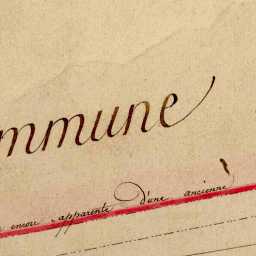 mmune
encore apparente d'une ancienne